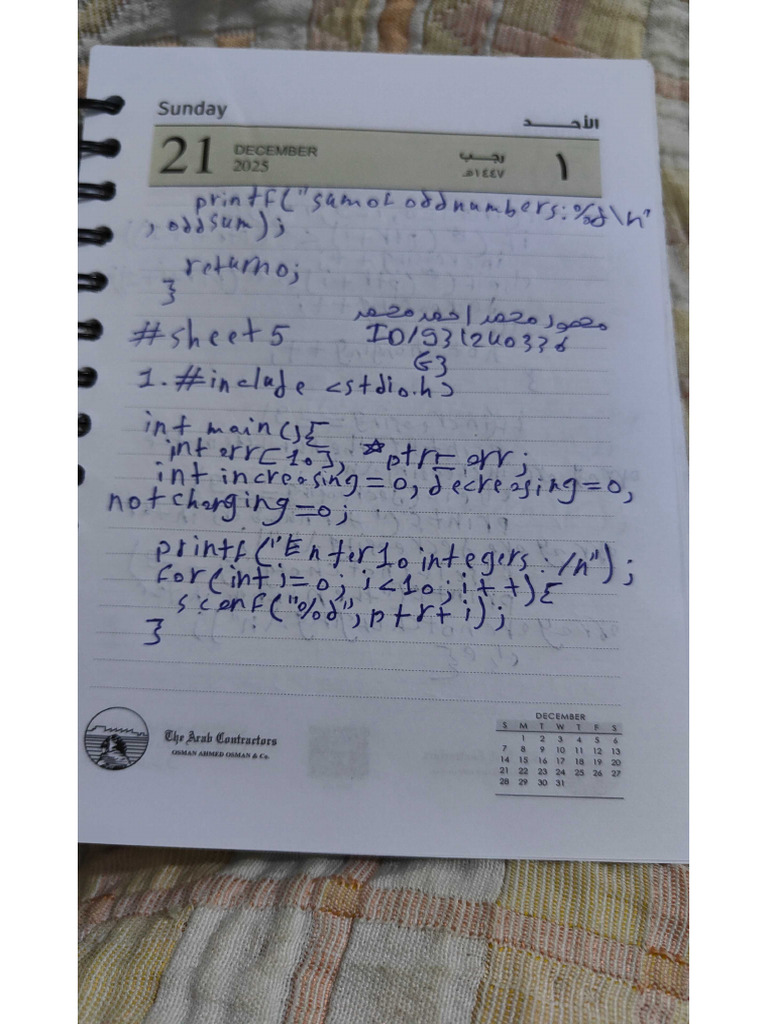 Sunday
الأحـــد
21 DECEMBER 2025
رجـب ١٤٤٧هـ
١
printf("sum of odd numbers:%d\n"
, oddsum);
return0;
}
محمود محمد احمد محمد
#sheet5 ID1931240336
G3
1. #include <stdio.h>
int main(){
int arr[10], *ptr= arr;
int increasing=0, decreasing=0,
notcharging=0;
printf("Enter10 integers: /n");
for(int i=0; i<10; i++){
scanf("%d", ptr+i);
}
The Arab Contractors
OSMAN AHMED OSMAN & Co.
DECEMBER
S M T W T F S
1 2 3 4 5 6
7 8 9 10 11 12 13
14 15 16 17 18 19 20
21 22 23 24 25 26 27
28 29 30 31